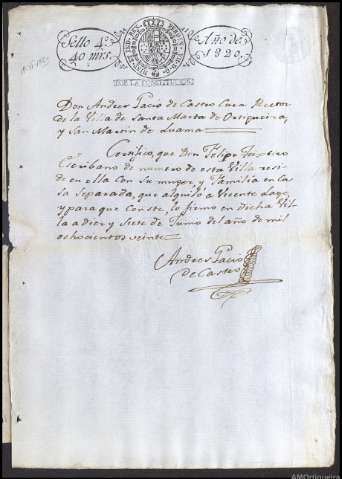 Sello 4º
40 mrs.
Año de
1820.
Don Andres Pacio de Castro Cura Rector
de la Villa de Santa Marta de Ortigueira,
y San Martin de Luama
Certifico, que Dn. Felipe
Escribano de numero de esta Villa resi-
de en ella con su muger, y Familia en Ca-
sa Separada, que alquiló a Vicente Lage
y para que conste, lo firmo en dicha Vil-
la a diez y Siete de Junio del año de mil
ochocientos veinte
Andres Pacio
de Castro
AMOrtigueira